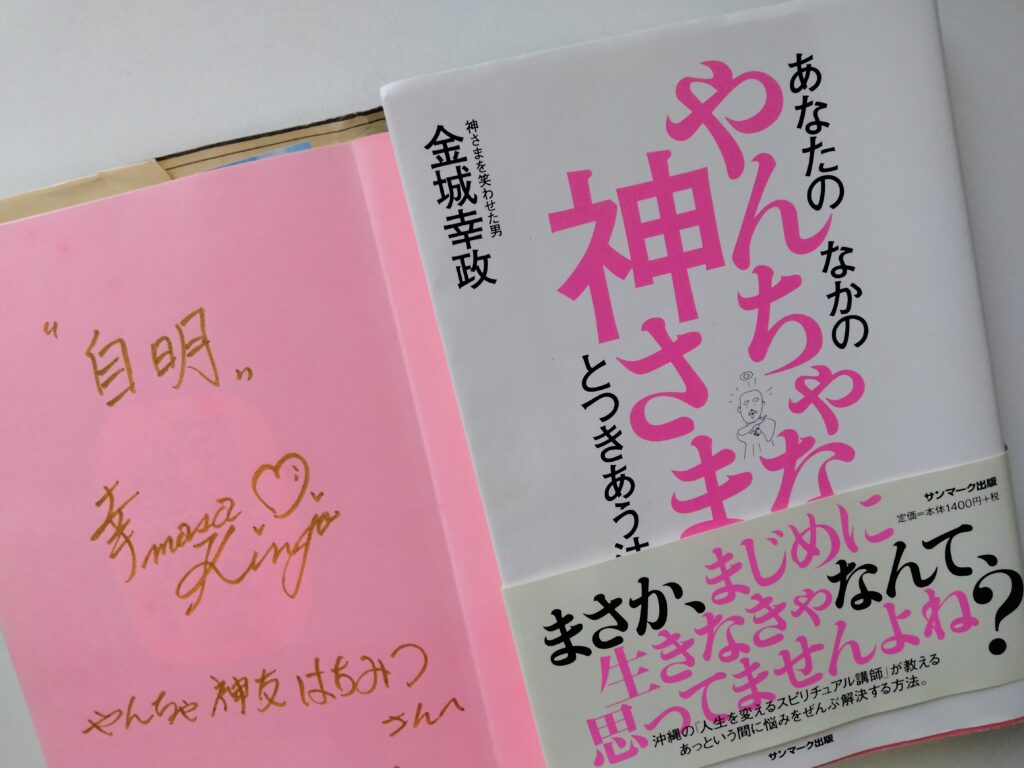 "自明"
幸masa Kinjo
やんちゃ神友はちみつ
さんへ
あなたの なかの
やんちゃな
神さま
とつきあう法
神さまを笑わせた男
金城幸政
サンマーク出版
定価=本体1400円+税
まさか、まじめに
生きなきゃなんて、
思ってませんよね?
沖縄の「人生を変えるスピリチュアル講師」が教える
あっという間に悩みをぜんぶ解決する方法。
サンマーク出版